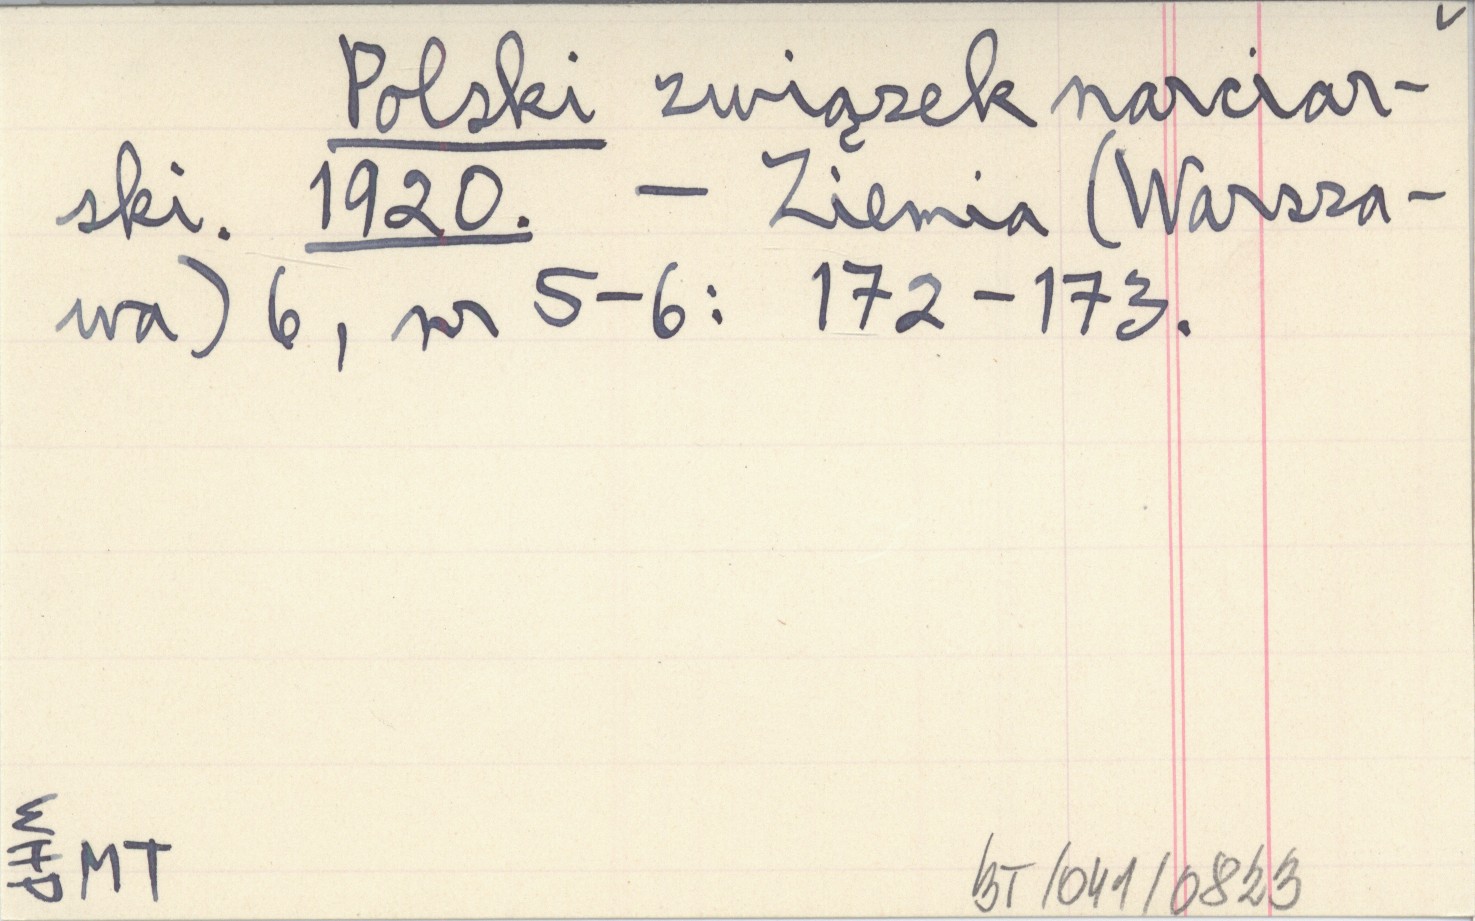 Polski związek narciar-
ski. 1920. — Ziemia (Warsza-
wa) 6, nr 5-6: 172-173.
MT
BT/041/0823